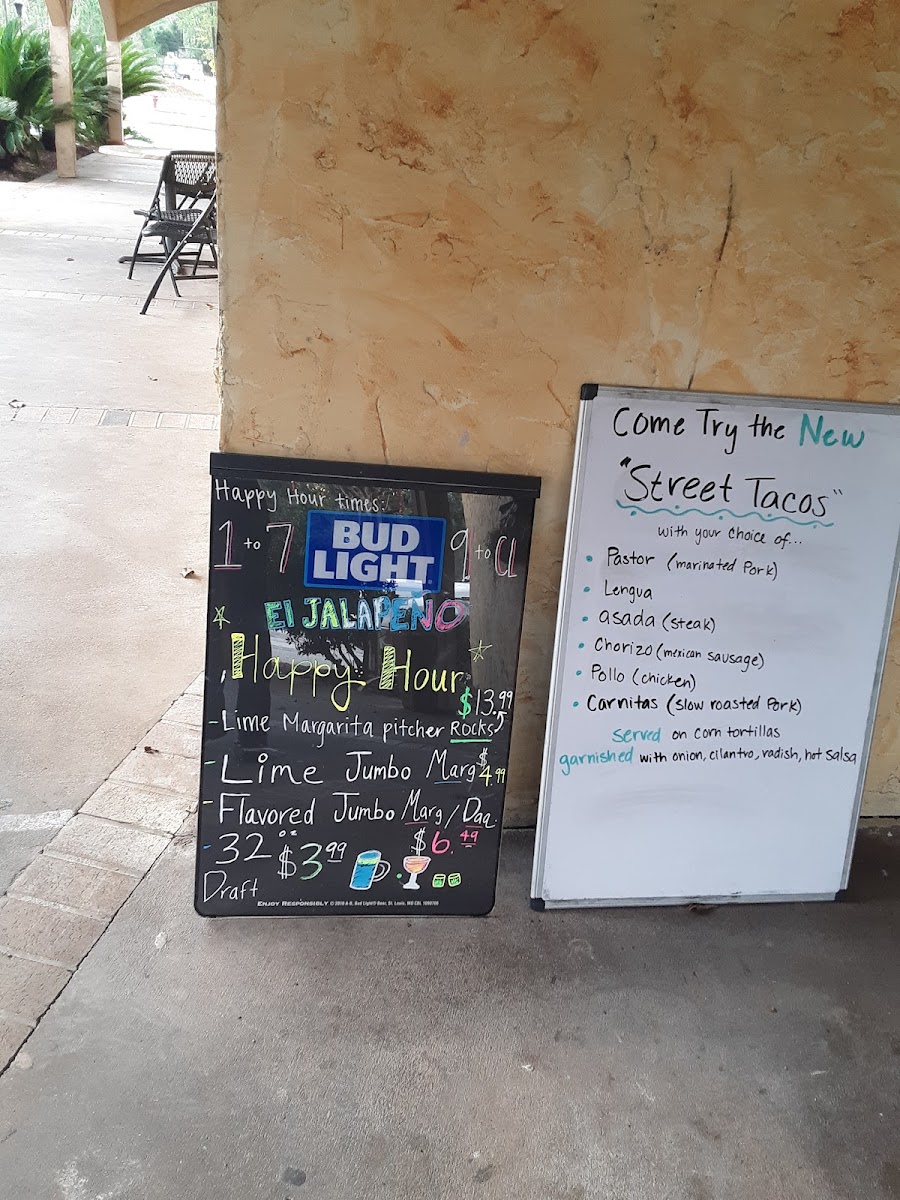 Happy Hour times:
1 to 7
BUD
LIGHT
9 to Cl
El JALAPEÑO
Happy Hour
$13.99
- Lime Margarita pitcher Rocks
- Lime Jumbo Marg $4.99
- Flavored Jumbo Marg/Daq.
$6.49
- 32 oz $3.99
Draft
ENJOY RESPONSIBLY © 2018 A-B, Bud Light® Beer, St. Louis, MO
Come Try the New
"Street Tacos"
with your choice of...
• Pastor (marinated Pork)
• Lengua
• asada (steak)
• Chorizo (mexican sausage)
• Pollo (chicken)
• Carnitas (slow roasted Pork)
served on corn tortillas
garnished with onion, cilantro, radish, hot salsa